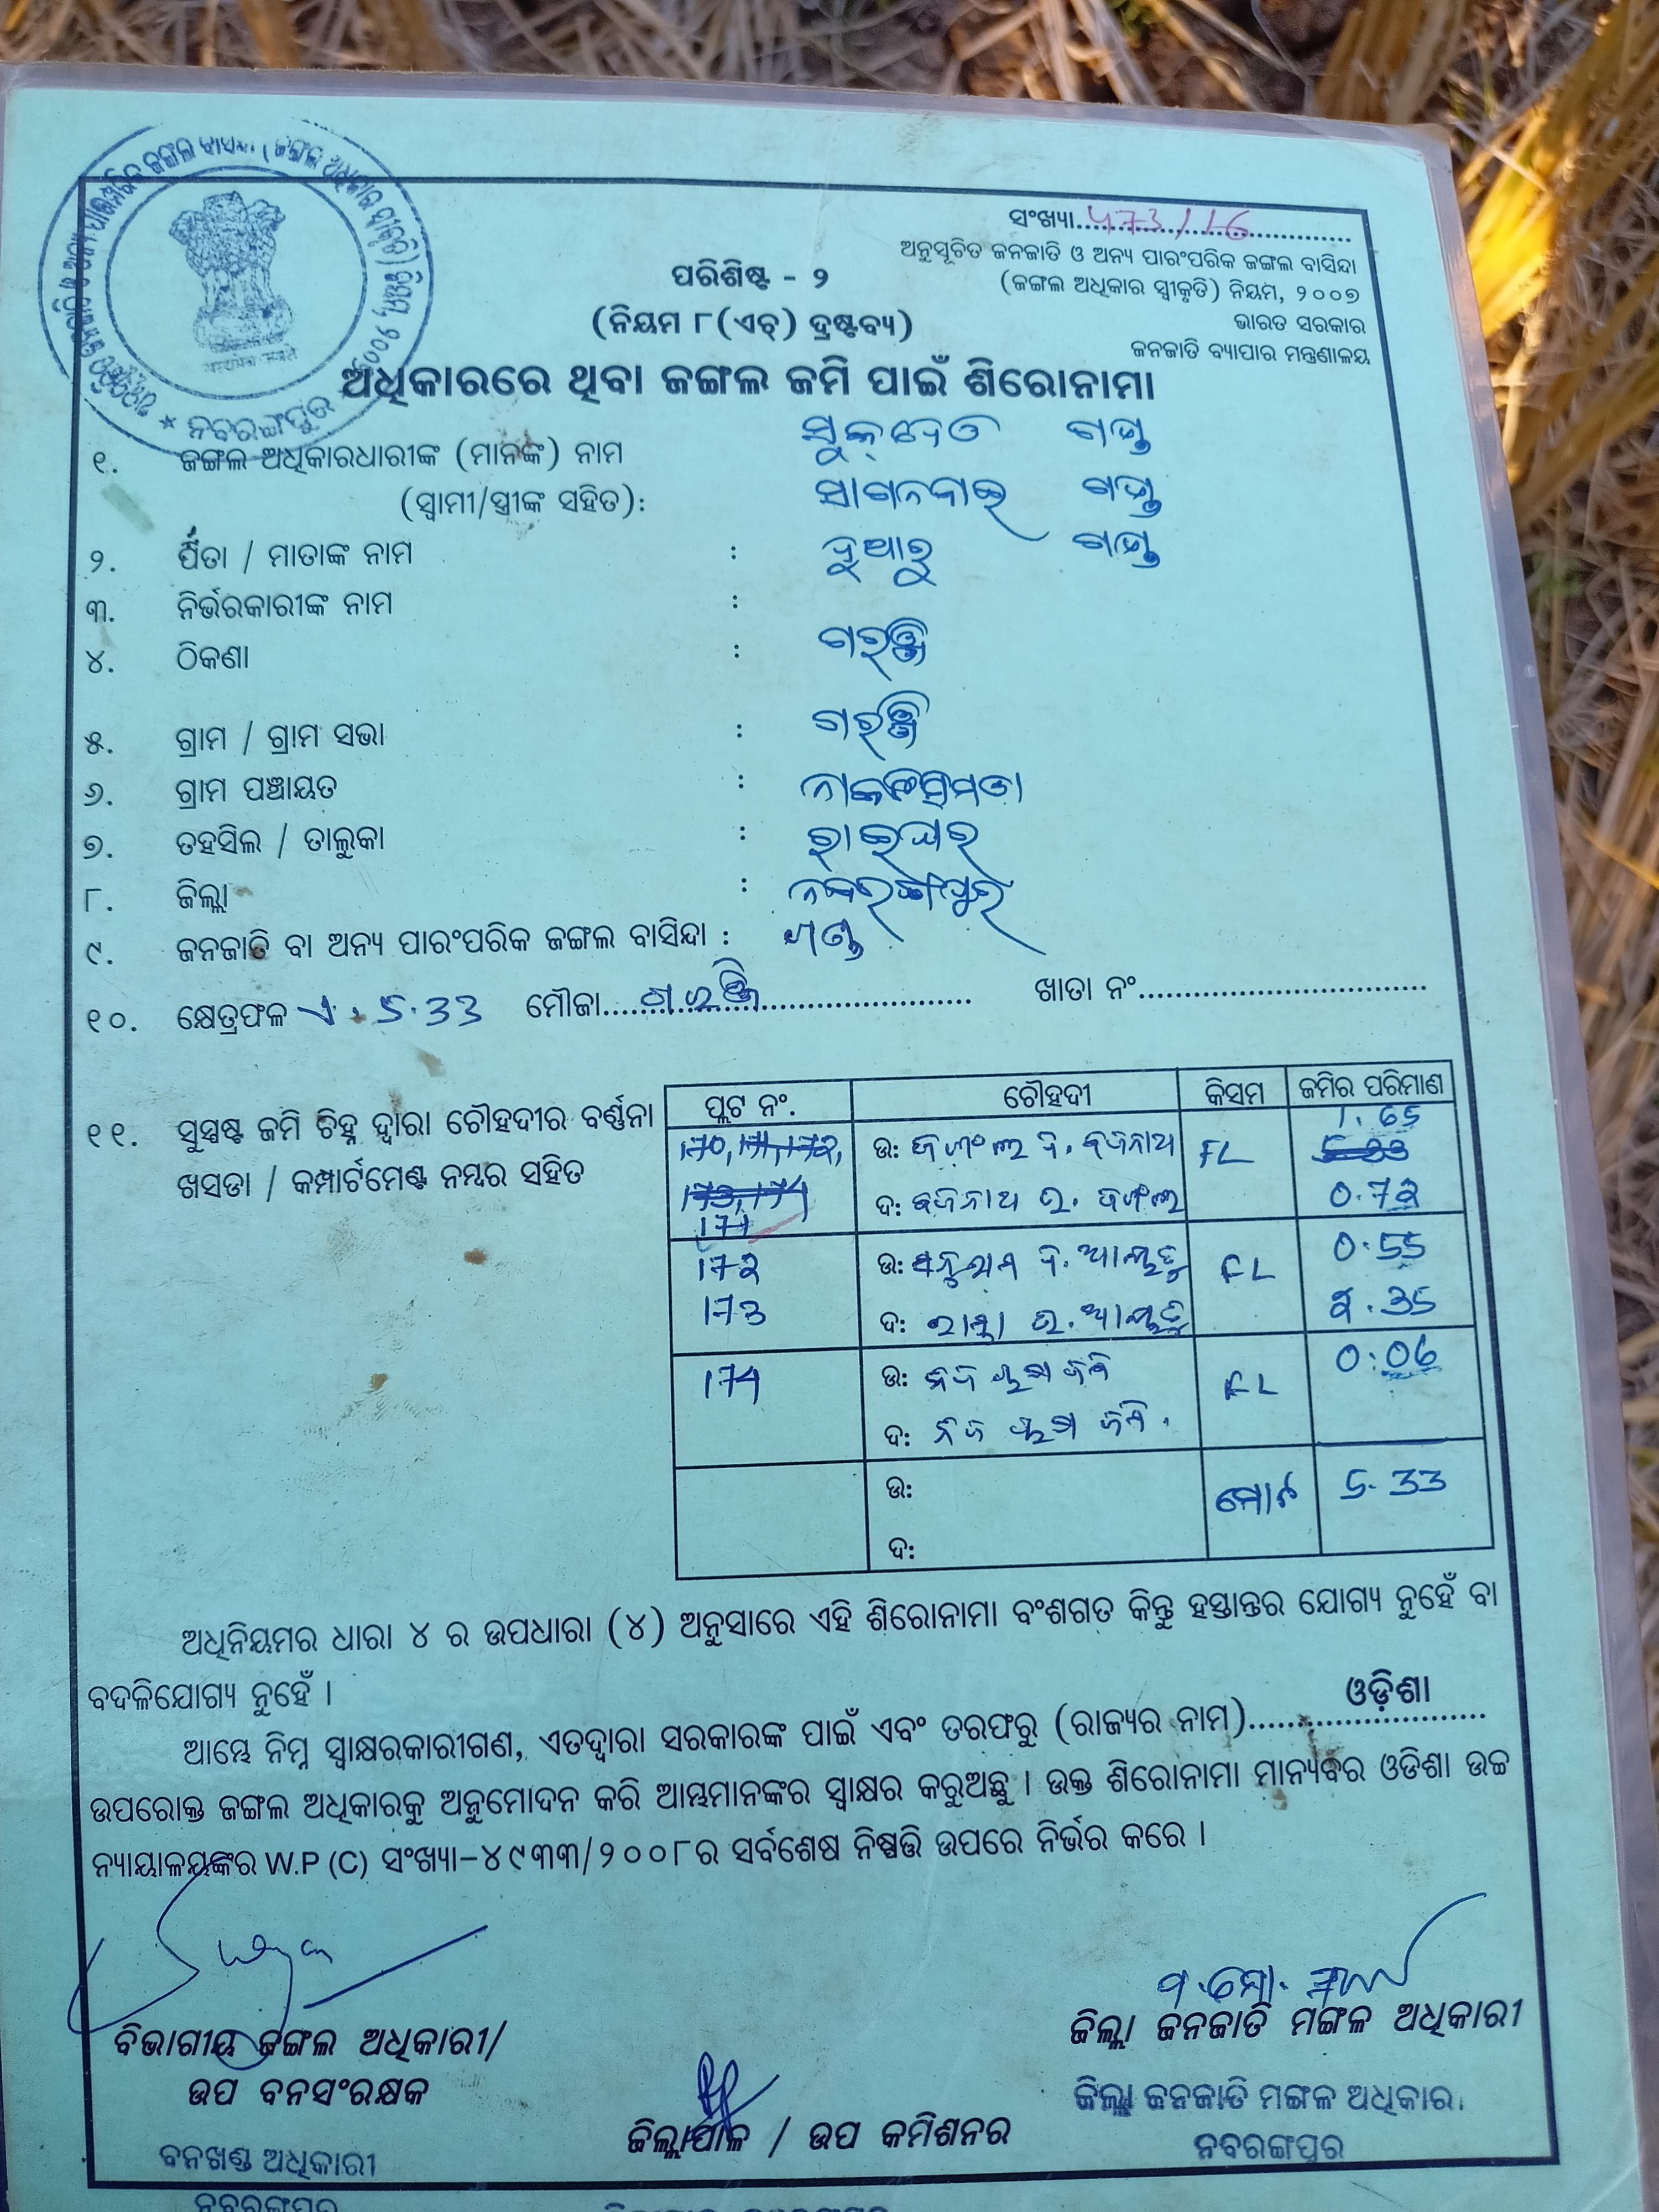 ସଂଖ୍ୟା.473/16
ଅନୁସୂଚିତ ଜନଜାତି ଓ ଅନ୍ୟ ପାରଂପରିକ ଜଙ୍ଗଲ ବାସିନ୍ଦା
(ଜଙ୍ଗଲ ଅଧିକାର ସ୍ୱୀକୃତି) ନିୟମ, ୨୦୦୭
ଭାରତ ସରକାର
ଜନଜାତି ବ୍ୟାପାର ମନ୍ତ୍ରଣାଳୟ
ପରିଶିଷ୍ଟ - ୨
(ନିୟମ ୮(ଏଚ୍) ଦ୍ରଷ୍ଟବ୍ୟ)
ଅଧିକାରରେ ଥିବା ଜଙ୍ଗଲ ଜମି ପାଇଁ ଶିରୋନାମା
ନବରଙ୍ଗପୁର
୧. ଜଙ୍ଗଲ ଅଧିକାରଧାରୀଙ୍କ (ମାନଙ୍କ) ନାମ ସୁକ୍‌ଦେଓ ଗଣ୍ଡ
(ସ୍ୱାମୀ/ସ୍ତ୍ରୀଙ୍କ ସହିତ): ସାଗନବାଇ ଗଣ୍ଡ
୨. ପିତା / ମାତାଙ୍କ ନାମ : ଦୁଆରୁ ଗଣ୍ଡ
୩. ନିର୍ଭରକାରୀଙ୍କ ନାମ :
୪. ଠିକଣା :
୫. ଗ୍ରାମ / ଗ୍ରାମ ସଭା :
୬. ଗ୍ରାମ ପଞ୍ଚାୟତ :
୭. ତହସିଲ / ତାଲୁକା : ରାଇଘର
୮. ଜିଲ୍ଲା : ନବରଙ୍ଗପୁର
୯. ଜନଜାତି ବା ଅନ୍ୟ ପାରଂପରିକ ଜଙ୍ଗଲ ବାସିନ୍ଦା : ଗଣ୍ଡ
୧୦. କ୍ଷେତ୍ରଫଳ ଏ. 5.33 ମୌଜା........ ଖାତା ନଂ........
୧୧. ସୁସ୍ପଷ୍ଟ ଜମି ଚିହ୍ନ ଦ୍ୱାରା ଚୌହଦୀର ବର୍ଣ୍ଣନା
ଖସଡା / କମ୍ପାର୍ଟମେଣ୍ଟ ନମ୍ବର ସହିତ
ପ୍ଲଟ ନଂ. ଚୌହଦୀ କିସମ ଜମିର ପରିମାଣ
1.65
170, 171, 172, ଉ: ଜଙ୍ଗଲ ଦ. ବଜନାଥ FL 5.33
173, 174 ଦ: ବଜିନାଥ ଉ. ଜଙ୍ଗଲ 0.72
171
172 ଉ: FL 0.55
173 ଦ: 2.35
174 ଉ: ନିଜ ଜମି FL 0.06
ଦ: ନିଜ ଜମି
ଉ: ମୋଟ 5.33
ଦ:
ଅଧିନିୟମର ଧାରା ୪ ର ଉପଧାରା (୪) ଅନୁସାରେ ଏହି ଶିରୋନାମା ବଂଶଗତ କିନ୍ତୁ ହସ୍ତାନ୍ତର ଯୋଗ୍ୟ ନୁହେଁ ବା
ବଦଳିଯୋଗ୍ୟ ନୁହେଁ ।
ଆମ୍ଭେ ନିମ୍ନ ସ୍ୱାକ୍ଷରକାରୀଗଣ, ଏତଦ୍ୱାରା ସରକାରଙ୍କ ପାଇଁ ଏବଂ ତରଫରୁ (ରାଜ୍ୟର ନାମ)........ଓଡ଼ିଶା........
ଉପରୋକ୍ତ ଜଙ୍ଗଲ ଅଧିକାରକୁ ଅନୁମୋଦନ କରି ଆମ୍ଭମାନଙ୍କର ସ୍ୱାକ୍ଷର କରୁଅଛୁ । ଉକ୍ତ ଶିରୋନାମା ମାନ୍ୟବର ଓଡିଶା ଉଚ୍ଚ
ନ୍ୟାୟାଳୟଙ୍କର W.P (C) ସଂଖ୍ୟା-୪୯୩୩/୨୦୦୮ର ସର୍ବଶେଷ ନିଷ୍ପତ୍ତି ଉପରେ ନିର୍ଭର କରେ ।
ବିଭାଗୀୟ ଜଙ୍ଗଲ ଅଧିକାରୀ/
ଉପ ବନସଂରକ୍ଷକ
ବନଖଣ୍ଡ ଅଧିକାରୀ
ନବରଙ୍ଗପୁର
ଜିଲ୍ଲାପାଳ / ଉପ କମିଶନର
ଜିଲ୍ଲା ଜନଜାତି ମଙ୍ଗଳ ଅଧିକାରୀ
ଜିଲ୍ଲା ଜନଜାତି ମଙ୍ଗଳ ଅଧିକାରୀ
ନବରଙ୍ଗପୁର